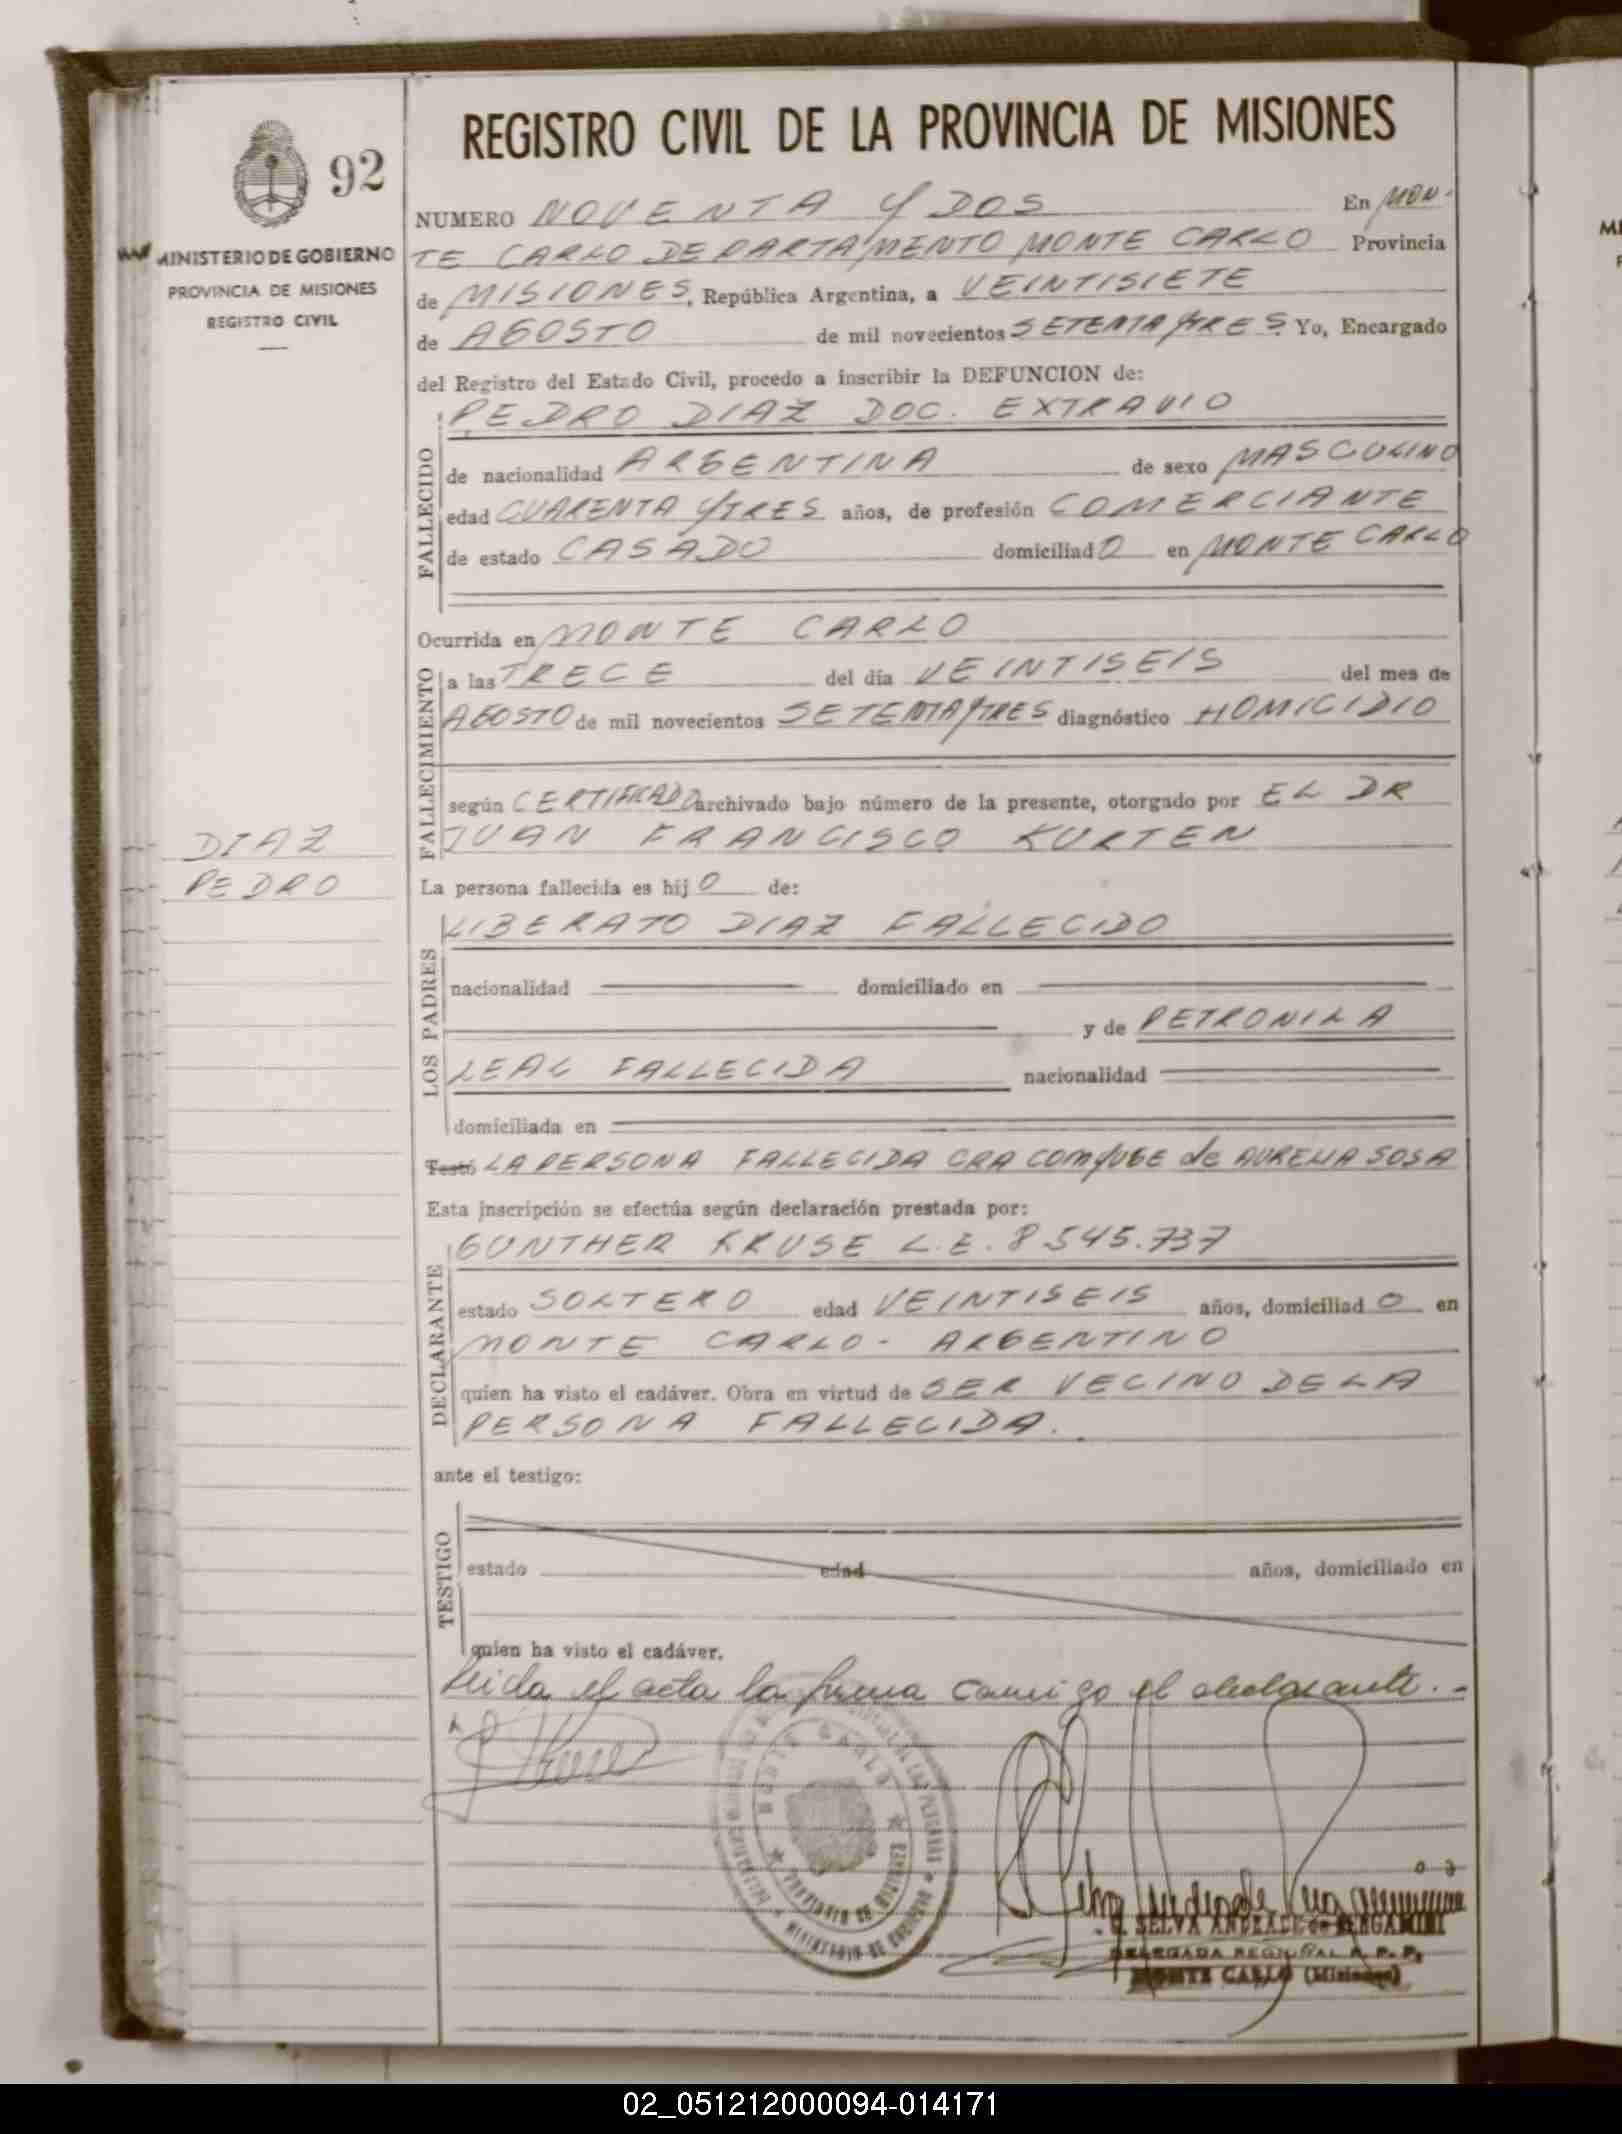 REGISTRO CIVIL DE LA PROVINCIA DE MISIONES
92
MINISTERIO DE GOBIERNO
PROVINCIA DE MISIONES
REGISTRO CIVIL
NUMERO NOVENTA Y DOS En MON-
TE CARLO DEPARTAMENTO MONTE CARLO Provincia
de MISIONES, República Argentina, a VEINTISIETE
de AGOSTO de mil novecientos SETENTA Y TRES Yo, Encargado
del Registro del Estado Civil, procedo a inscribir la DEFUNCION de:
FALLECIDO
PEDRO DIAZ DOC. EXTRAVIO
de nacionalidad ARGENTINA de sexo MASCULINO
edad CUARENTA Y TRES años, de profesión COMERCIANTE
de estado CASADO domiciliado en MONTE CARLO
Ocurrida en MONTE CARLO
FALLECIMIENTO
a las TRECE del día VEINTISEIS del mes de
AGOSTO de mil novecientos SETENTA Y TRES diagnóstico HOMICIDIO
según CERTIFICADO archivado bajo número de la presente, otorgado por EL DR
JUAN FRANCISCO KURTEN
DIAZ
PEDRO
La persona fallecida es hijo de:
LOS PADRES
LIBERATO DIAZ FALLECIDO
nacionalidad domiciliado en
y de PETRONILA
LEAL FALLECIDA nacionalidad
domiciliada en
Testó LA PERSONA FALLECIDA ERA CONYUGE de AURELIA SOSA
Esta inscripción se efectúa según declaración prestada por:
DECLARANTE
GUNTHER KRUSE L.E. 8.545.737
estado SOLTERO edad VEINTISEIS años, domiciliado en
MONTE CARLO - ARGENTINO
quien ha visto el cadáver. Obra en virtud de SER VECINO DE LA
PERSONA FALLECIDA.
ante el testigo:
TESTIGO
estado edad años, domiciliado en
quien ha visto el cadáver.
Leida el acta la firma conmigo el declarante. -
MONTE CARLO
PROVINCIA DE MISIONES
MINISTERIO DE GOBIERNO
SELVA ANDRADE de BERGAMINI
DELEGADA REGIONAL R. P. P.
MONTE CARLO (Misiones)
02_051212000094-014171